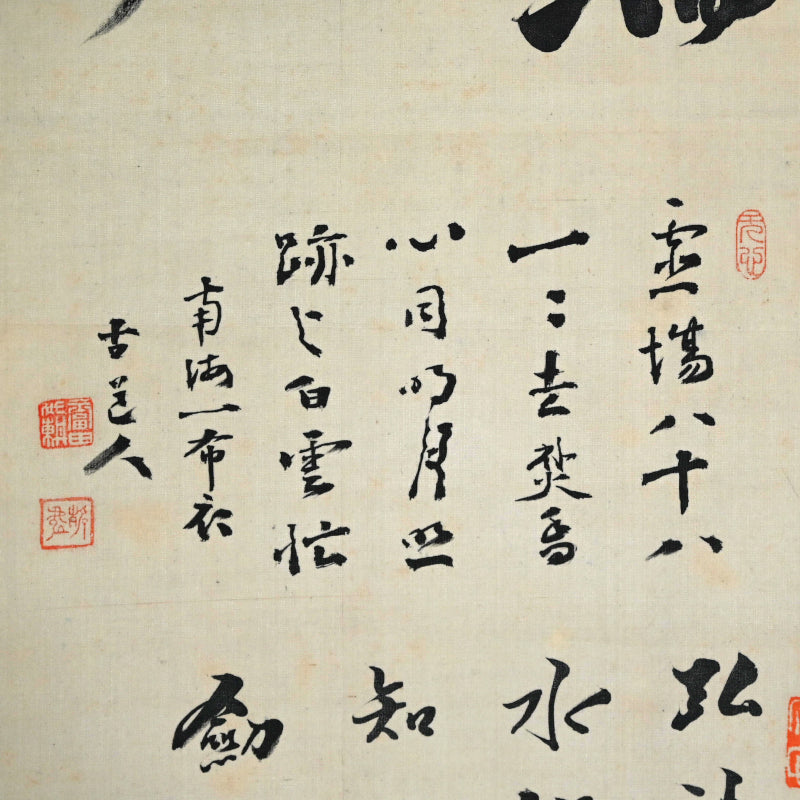 靈場八十八
一二去焚香
心同明月照
跡与白雲忙
南海一布衣
古道人
弘
水
知
劔